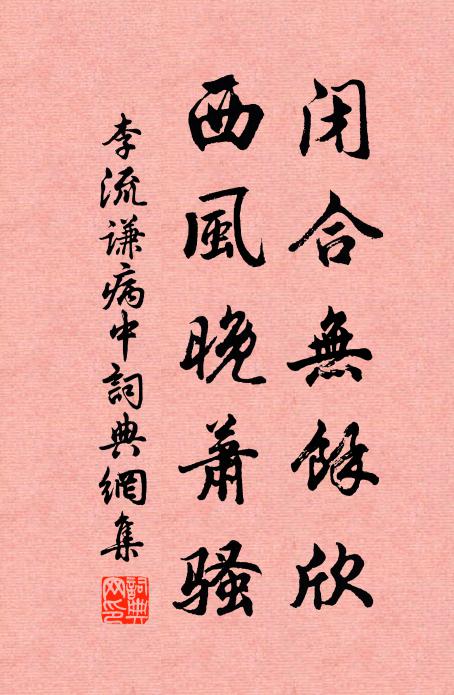 闭合無餘欣
西風晚蕭骚
李流谦病中詞典網集
詞典网印